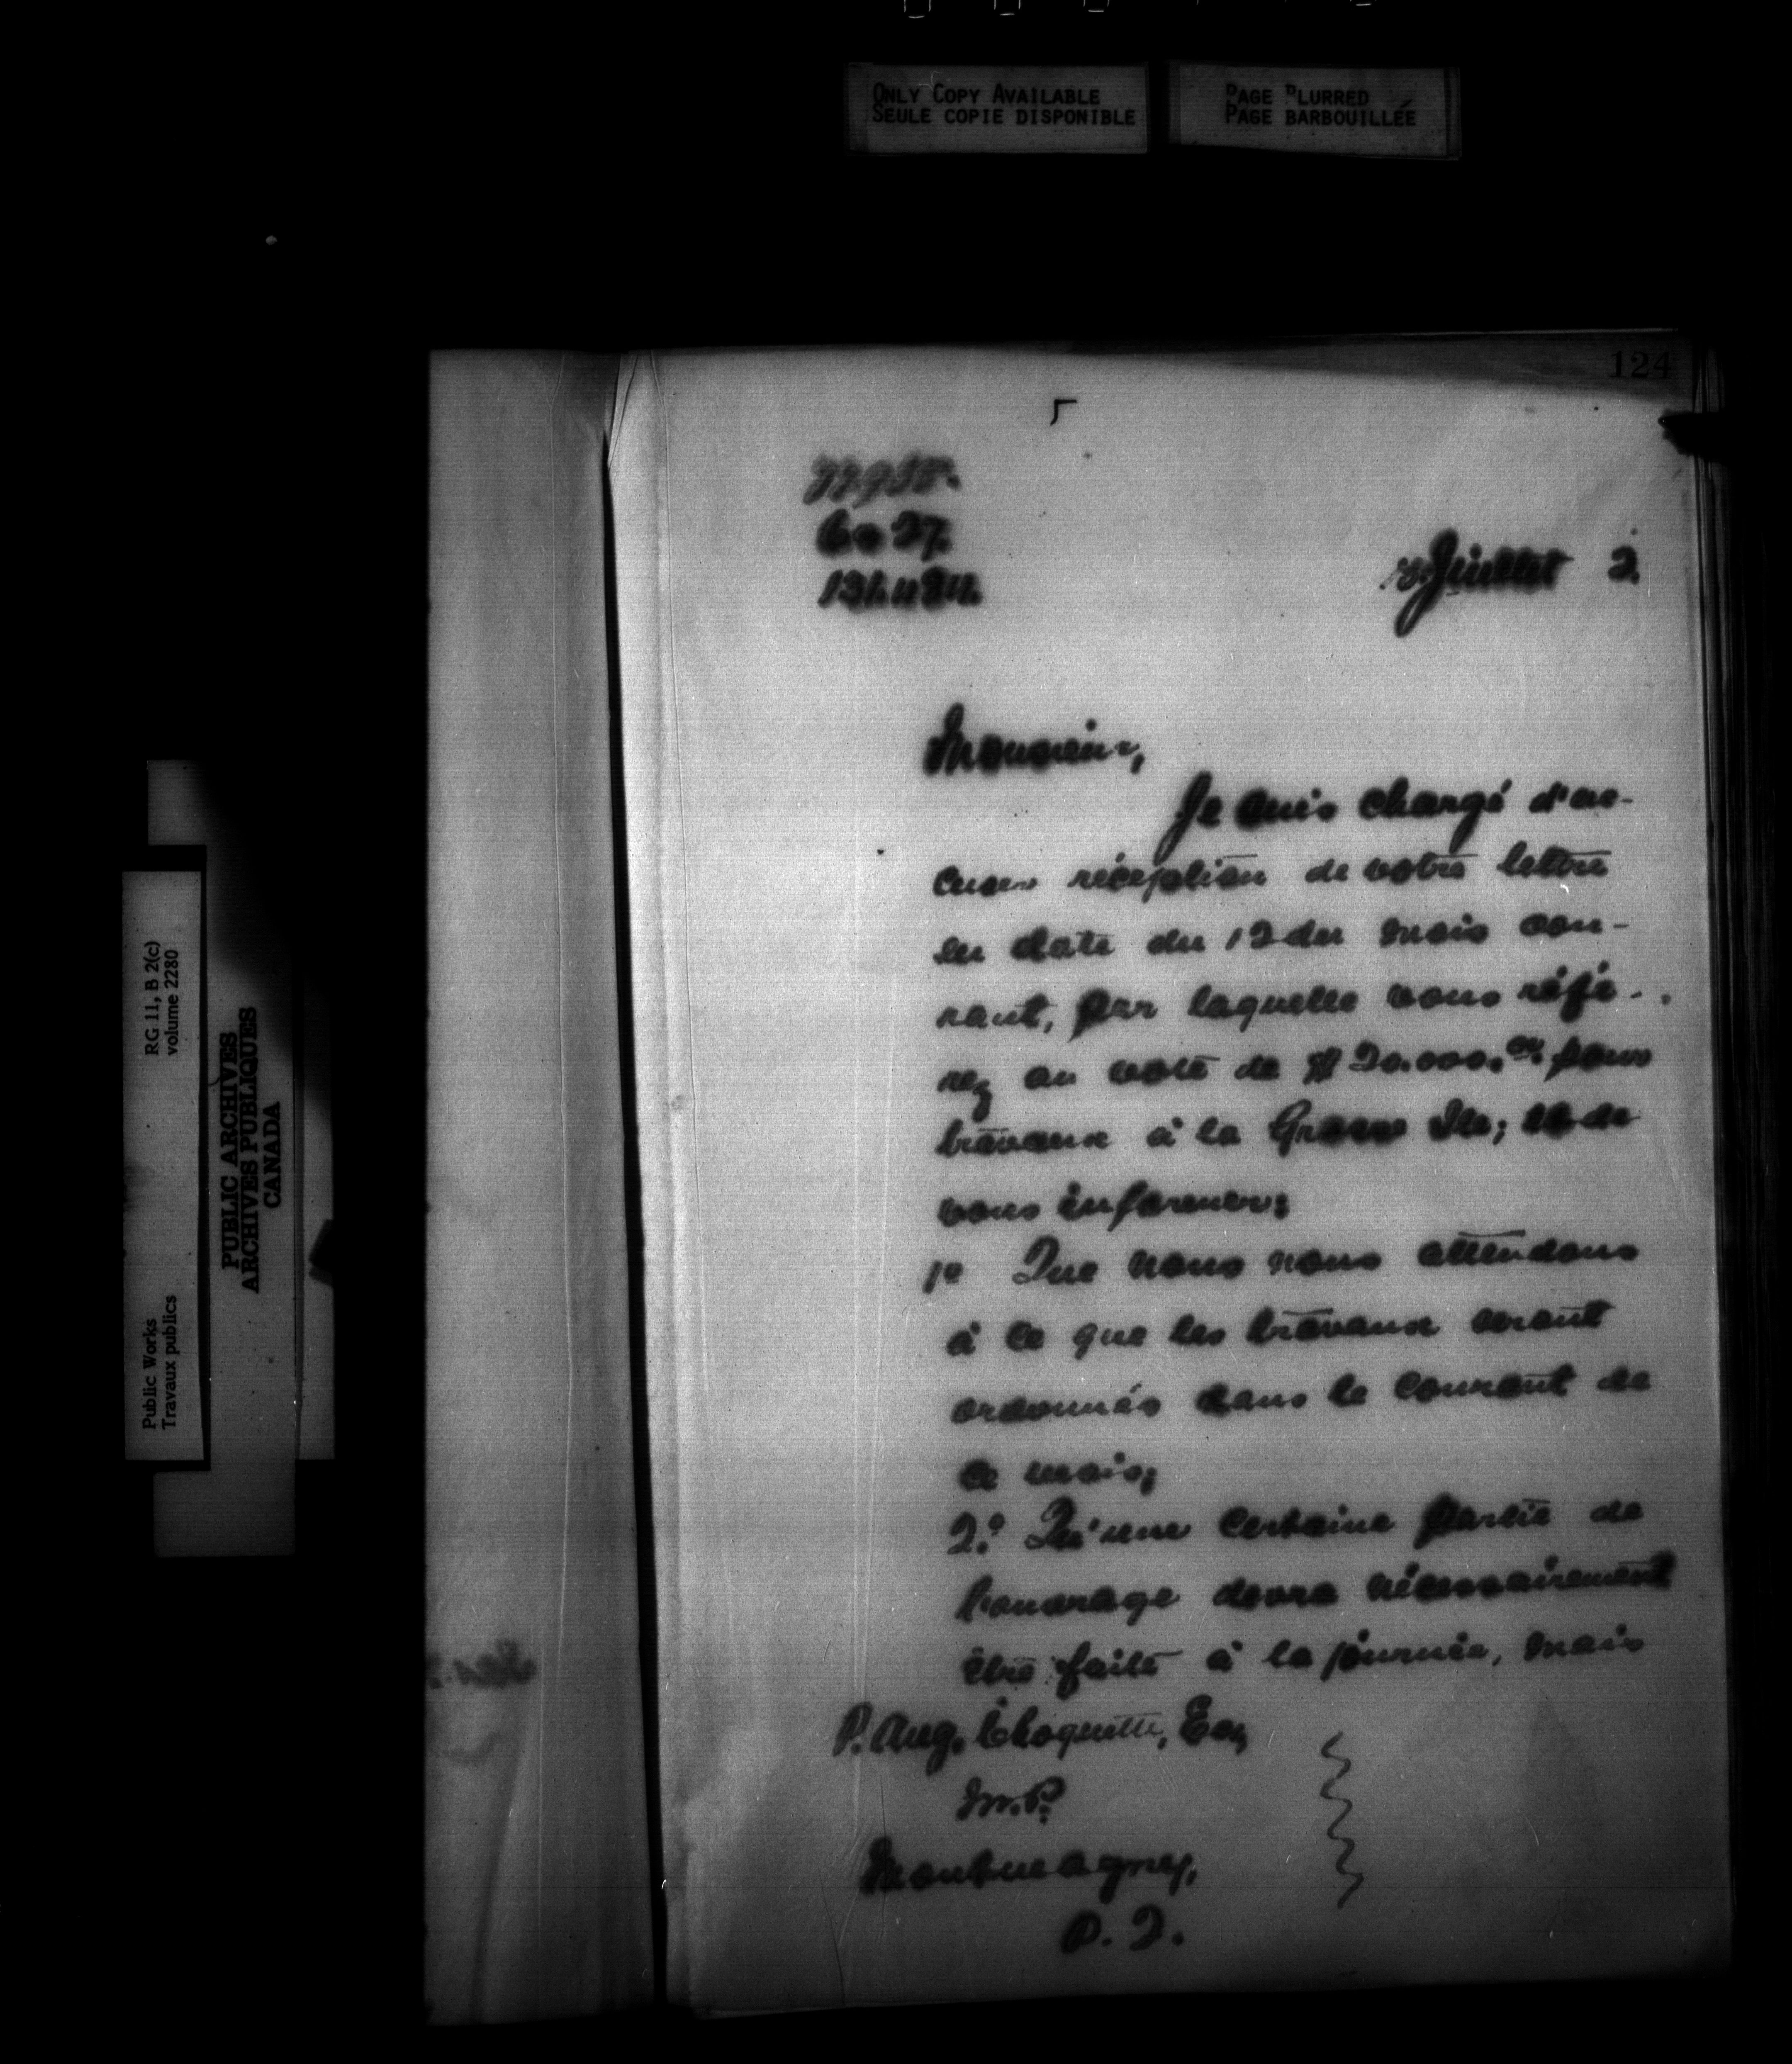 ONLY COPY AVAILABLE
SEULE COPIE DISPONIBLE
PAGE BLURRED
PAGE BARBOUILLÉE
124
131.484.
Juillet 2.
Monsieur,
Je suis chargé d'ac-
cuser réception de votre lettre
en date du 12 du mois cou-
rant, par laquelle vous réfé-
rez au vote de $20.000.00 pour
travaux à la Grosse Ile; et de
vous informer:
1o Que nous nous attendons
à ce que les travaux seront
ordonnés dans le courant de
ce mois;
2o Qu'une certaine partie de
l'ouvrage devra nécessairement
être faite à la journée, mais
P. Aug. Choquette, Esq
M.P.
Montmagny,
P. Q.
RG 11, B 2(c)
volume 2280
Public Works
Travaux publics
PUBLIC ARCHIVES
ARCHIVES PUBLIQUES
CANADA